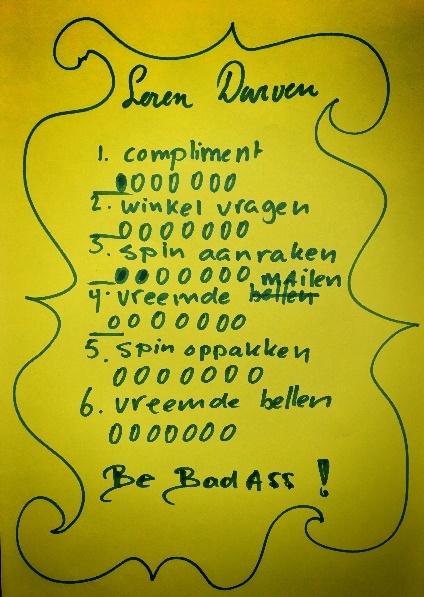 Leren Durven
1. compliment
0000000
2. winkel vragen
0000000
3. spin aanraken
0000000 mailen
4. vreemde bellen
0000000
5. spin oppakken
0000000
6. vreemde bellen
0000000
Be BadAss !